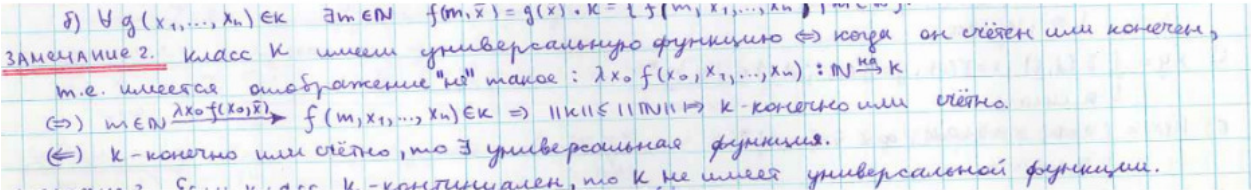 б) ∀ g(x₁,...,xₙ) ∈ K ∃m∈ℕ f(m, x̄) = g(x). K = { f(m, x₁,...,xₙ), m∈ℕ }.
ЗАМЕЧАНИЕ 2. Класс K имеет универсальную функцию ⇔ когда он счётен или конечен,
т.е. имеется отображение "на" такое: λx₀ f(x₀, x₁,...,xₙ) : ℕ —на→ K
(⇒) m∈ℕ —λx₀ f(x₀,x̄)→ f(m, x₁,..., xₙ) ∈ K ⇒ ||K|| ≤ ||ℕ|| ⇒ K - конечно или счётно.
(⇐) K - конечно или счётно, то ∃ универсальная функция.
Если класс K - континуален, то K не имеет универсальной функции.